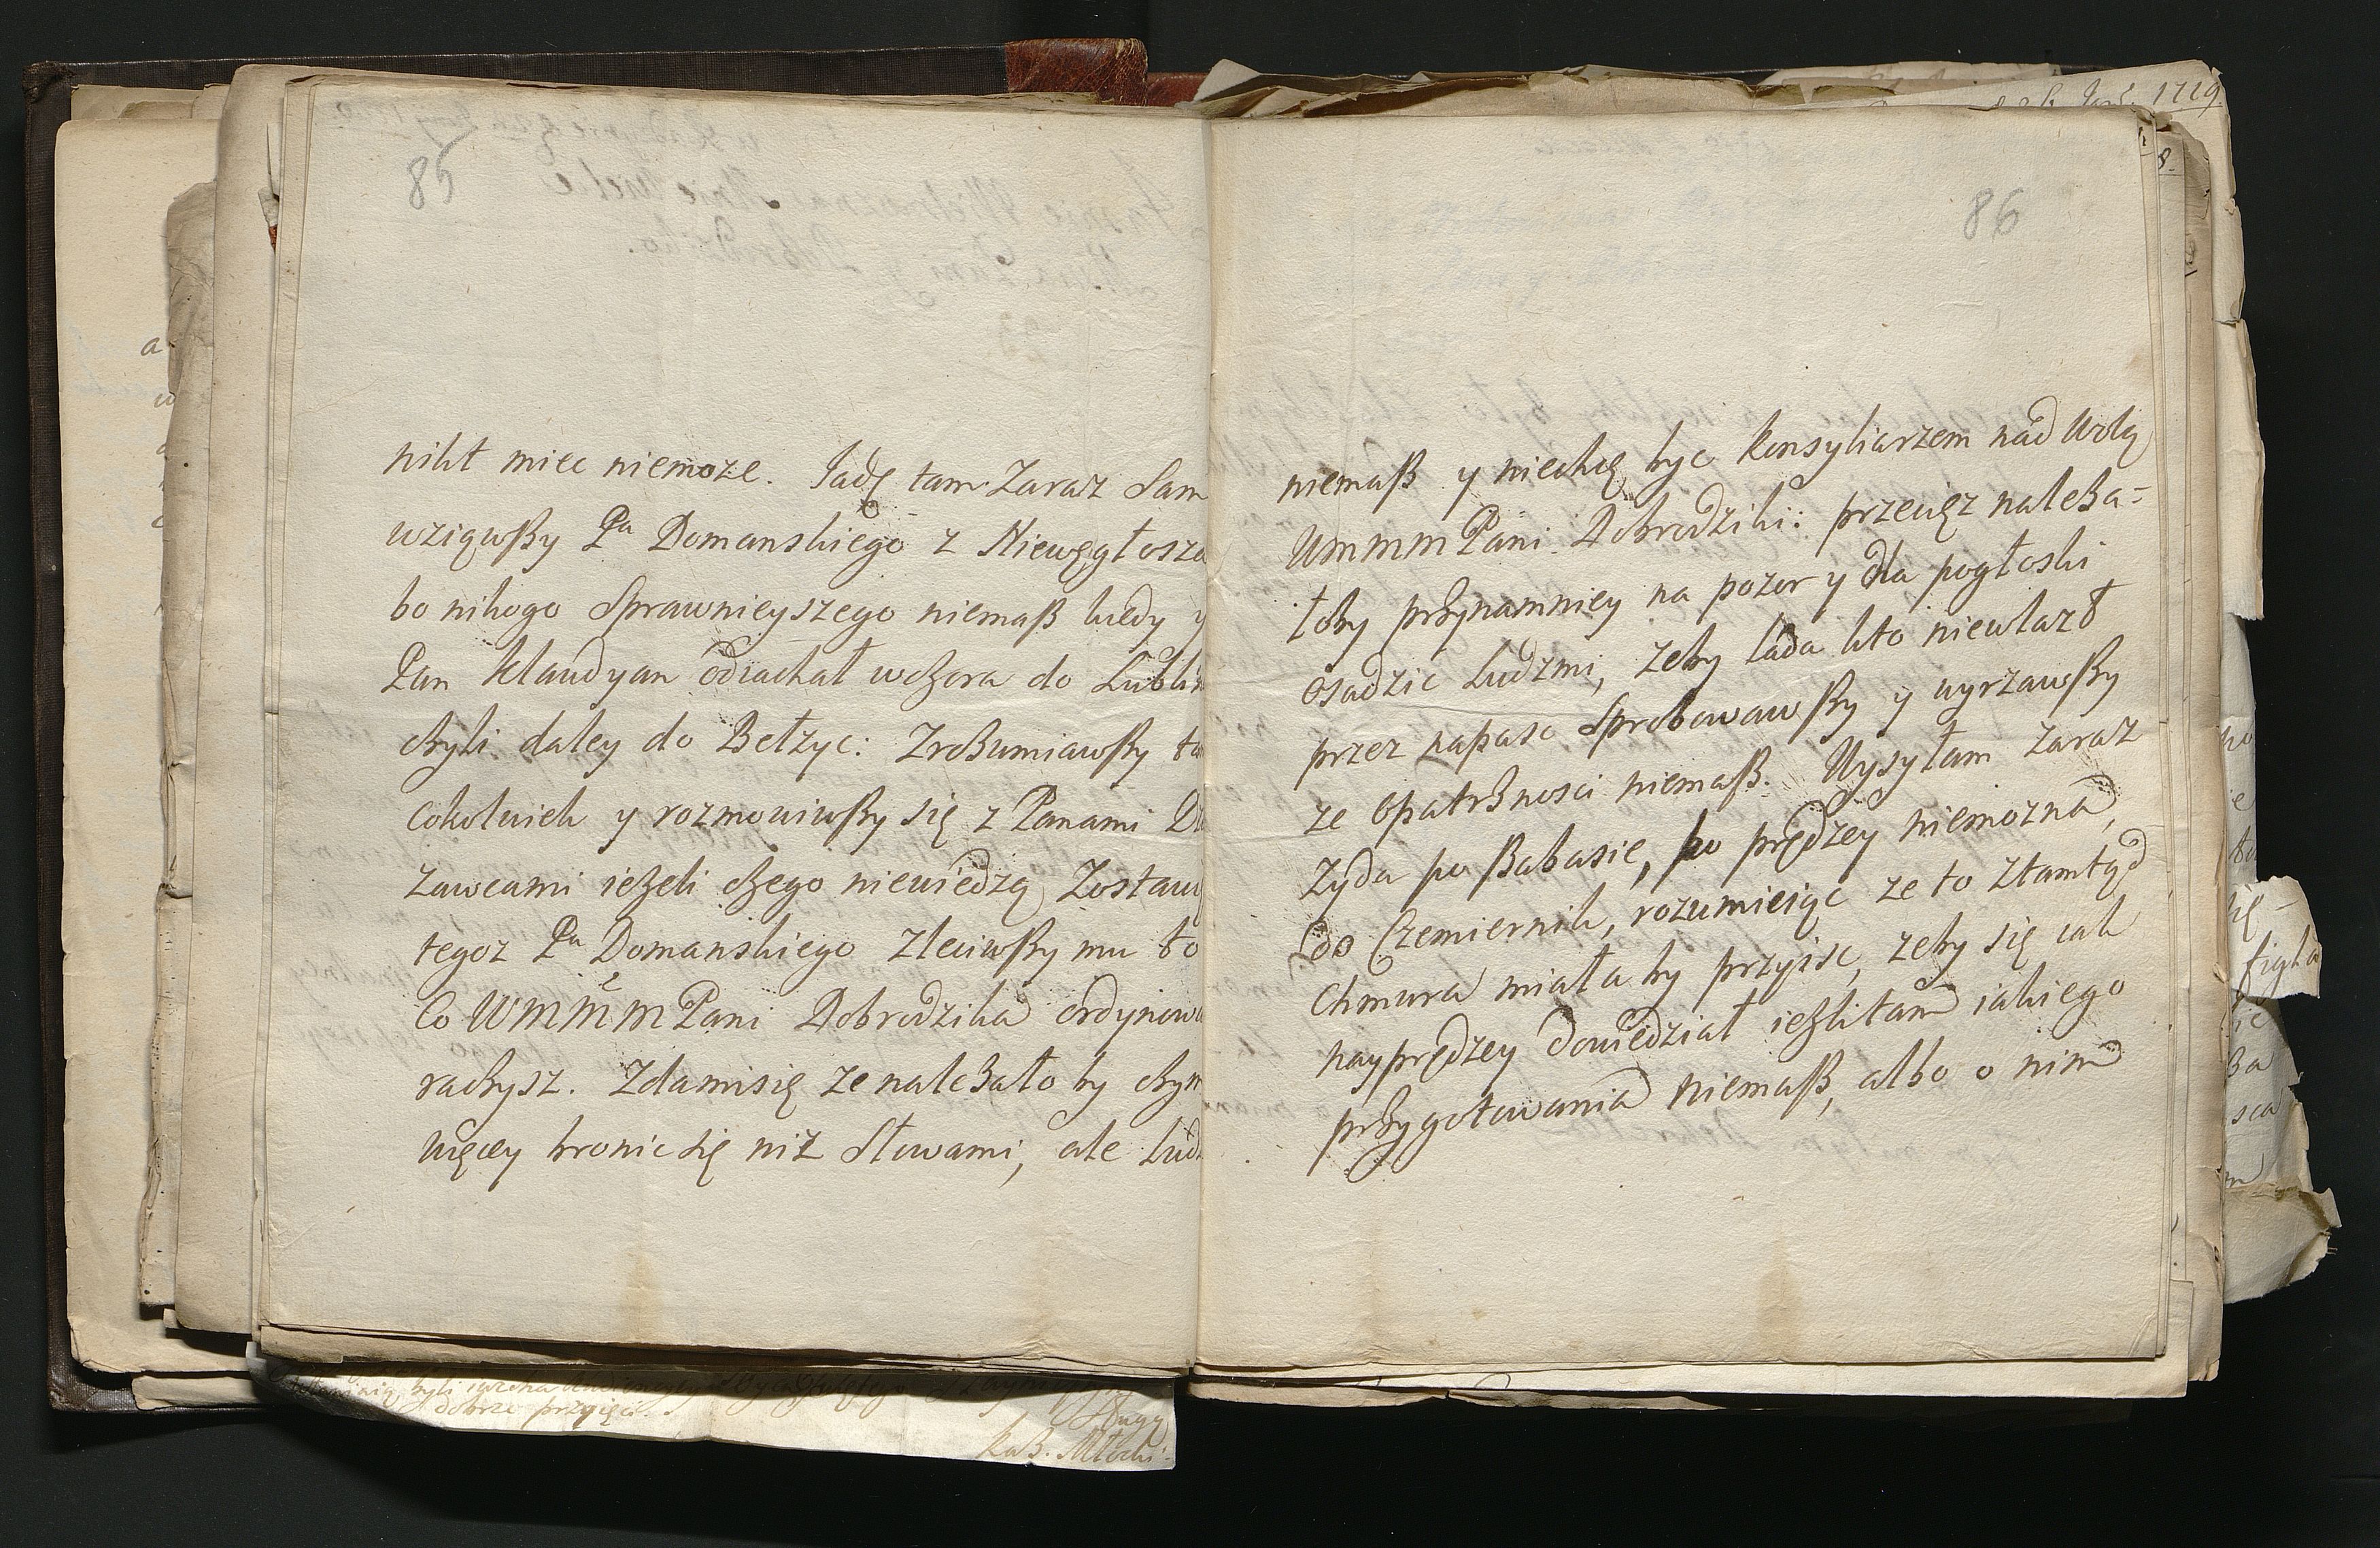 85
nikt miec niemoze. Jadę tam Zaraz Sam
wziąwßy Pa Domanskiego z Niewęgłosza
bo nikogo Sprawnieyszego niemaß kiedy y
Pan Klaudyan odiachał wczora do Lublin
czyli daley do Bełzyc: Zrozumiawßy ta
cokolwiek y rozmowiwßy się z Panami Dz
zawcami ieżeli czego niewiedzą Zostaw
tegoz Pa Domanskiego zleciwßy mu to
Co WMMM Pani Dobrodzika ordynowa
raczysz. Zdamisię ze należało by czym
więcey bronic się niz Słowami, ale Ludz
86
niemaß y niechcę byc konsyliarzem nad Wolą
WMMM Pani Dobrodziki: przecięz należa=
łoby przynamniey na pozor y dla pogłoski
osadzic Ludzmi, zeby lada kto niewlazł
przez napasc Sprobowawßy y wyrzawßy
ze opatrznosci niemaß. Wysyłam zaraz
Zyda po ßabasie, bo prędzey niemozna,
do Czemiernik, rozumieiąc ze to ztamtąd
Chmura miała by przyisc, zeby się iak
nayprędzey dowiedział ieżlitam iakiego
przygotowania niemaß, albo o nim
1729
8.
dobrze przyięci.
Sługą
Kaß. Młocki
figla